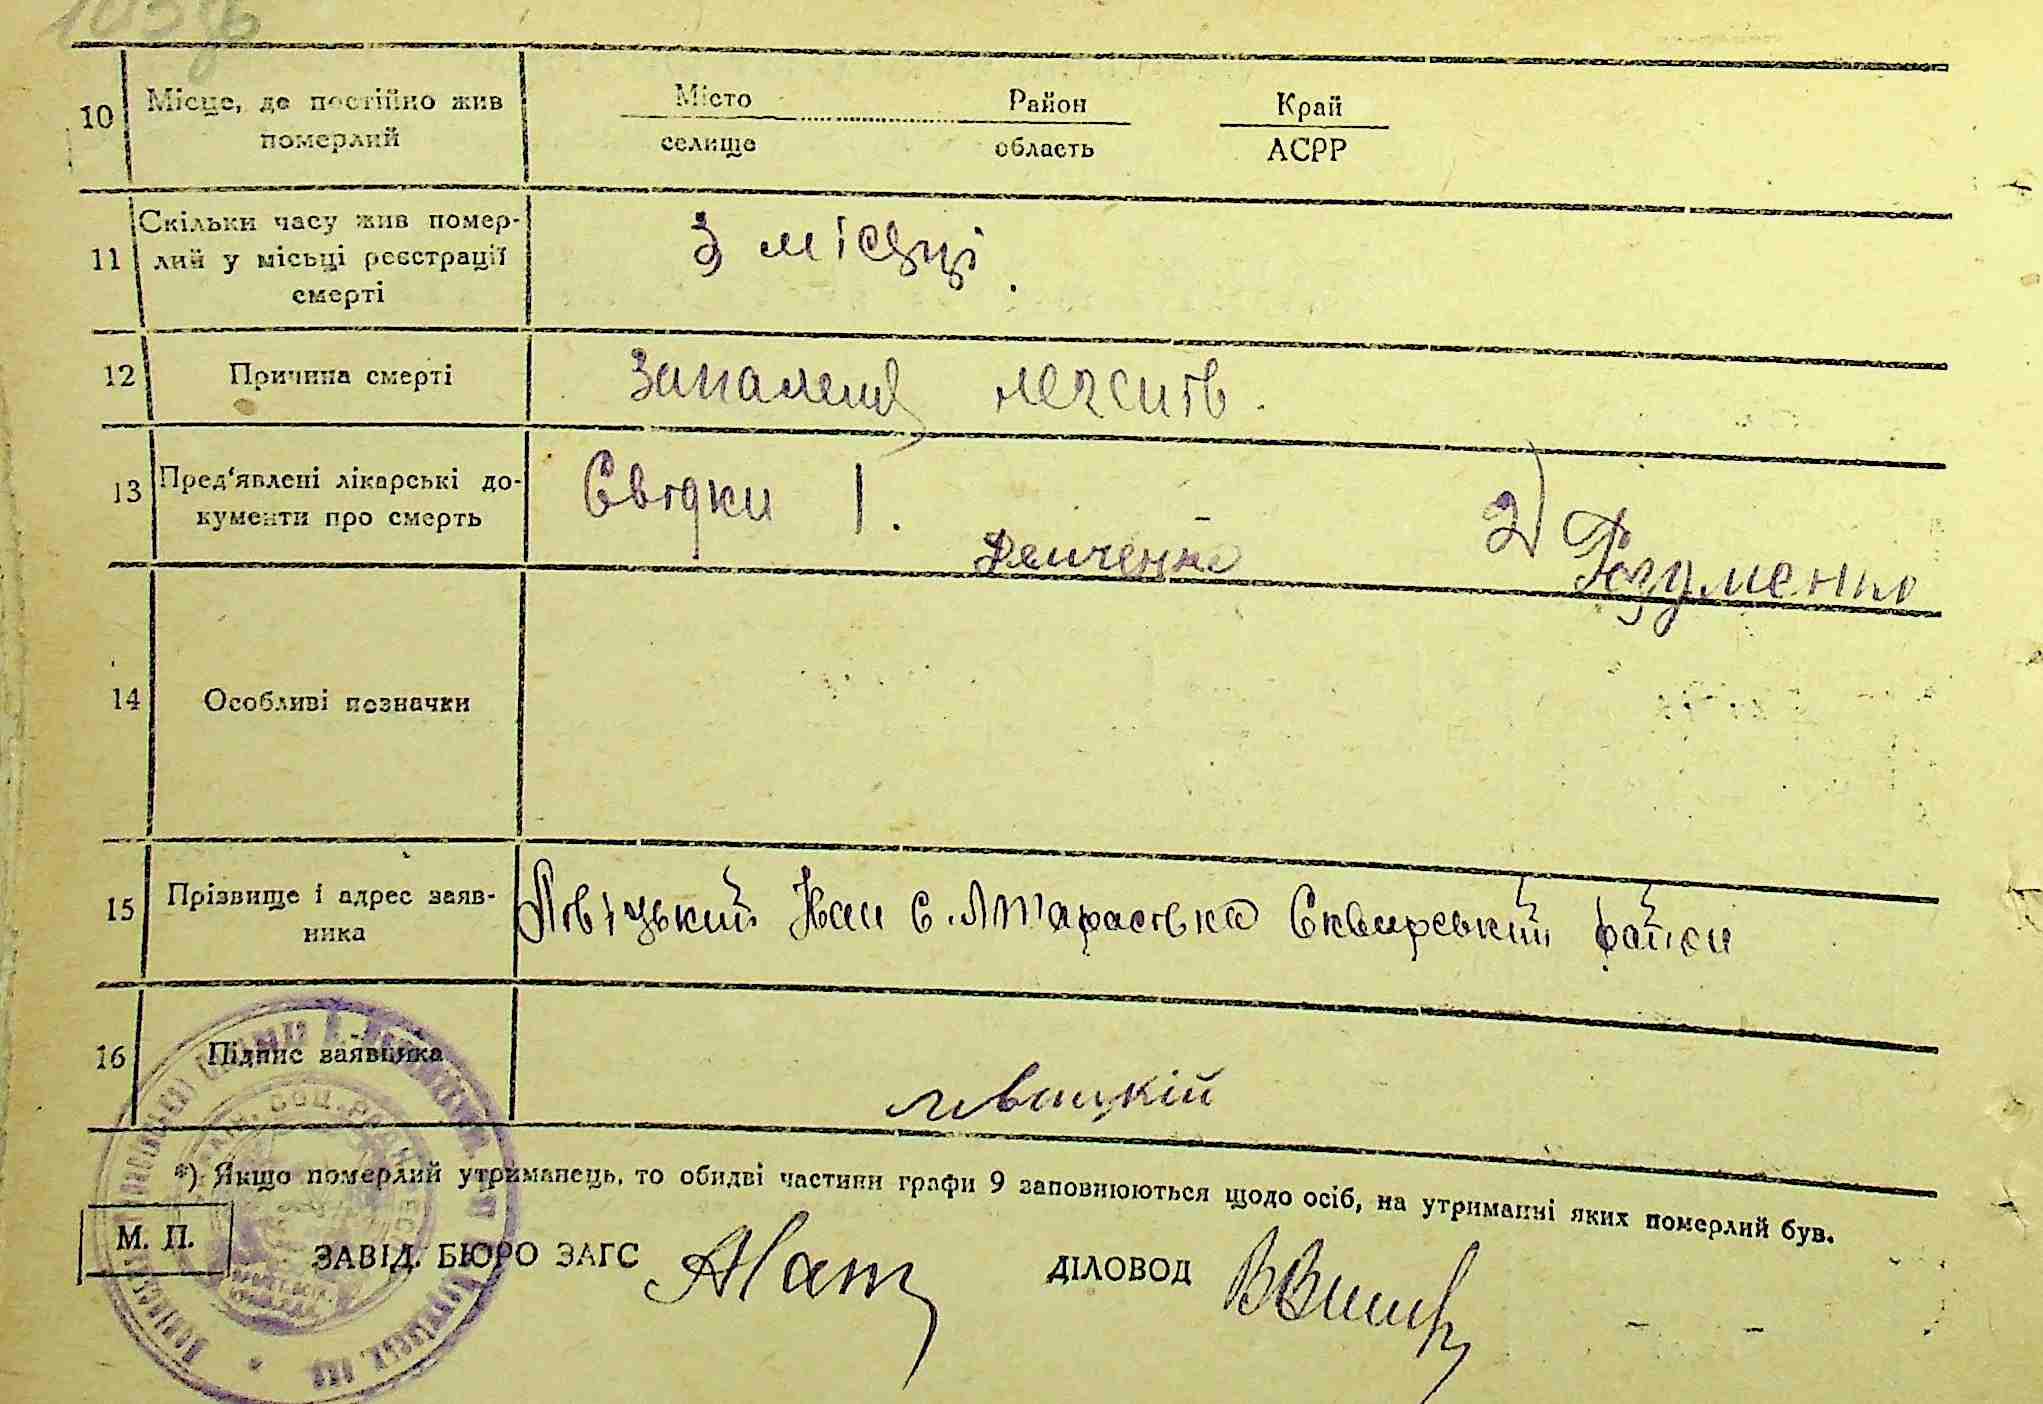 10 Місце, де постійно жив померлий
Місто Район Край
селище область АСРР
11 Скільки часу жив помер-
лий у місьці реєстрації
смерті
3 місяці.
12 Причина смерті
Запалення легенів.
13 Пред'явлені лікарські до-
кументи про смерть
Свідки 1.
Демченко
2) Розуменко
14 Особливі позначки
15 Прізвище і адрес заяв-
ника
Лівіцький Іван с. Тарасівка Сквирський район
16 Підпис заявника
*) Якщо померлий утриманець, то обидві частини графи 9 заповнюються щодо осіб, на утриманні яких померлий був.
М. П.
ЗАВІД. БЮРО ЗАГС
ДІЛОВОД